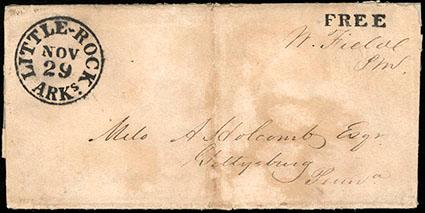 LITTLE-ROCK
NOV
29
ARKs.
FREE
W. Field
P.M.
Milo A Holcomb Esqr
Gettysburg
Pennaa